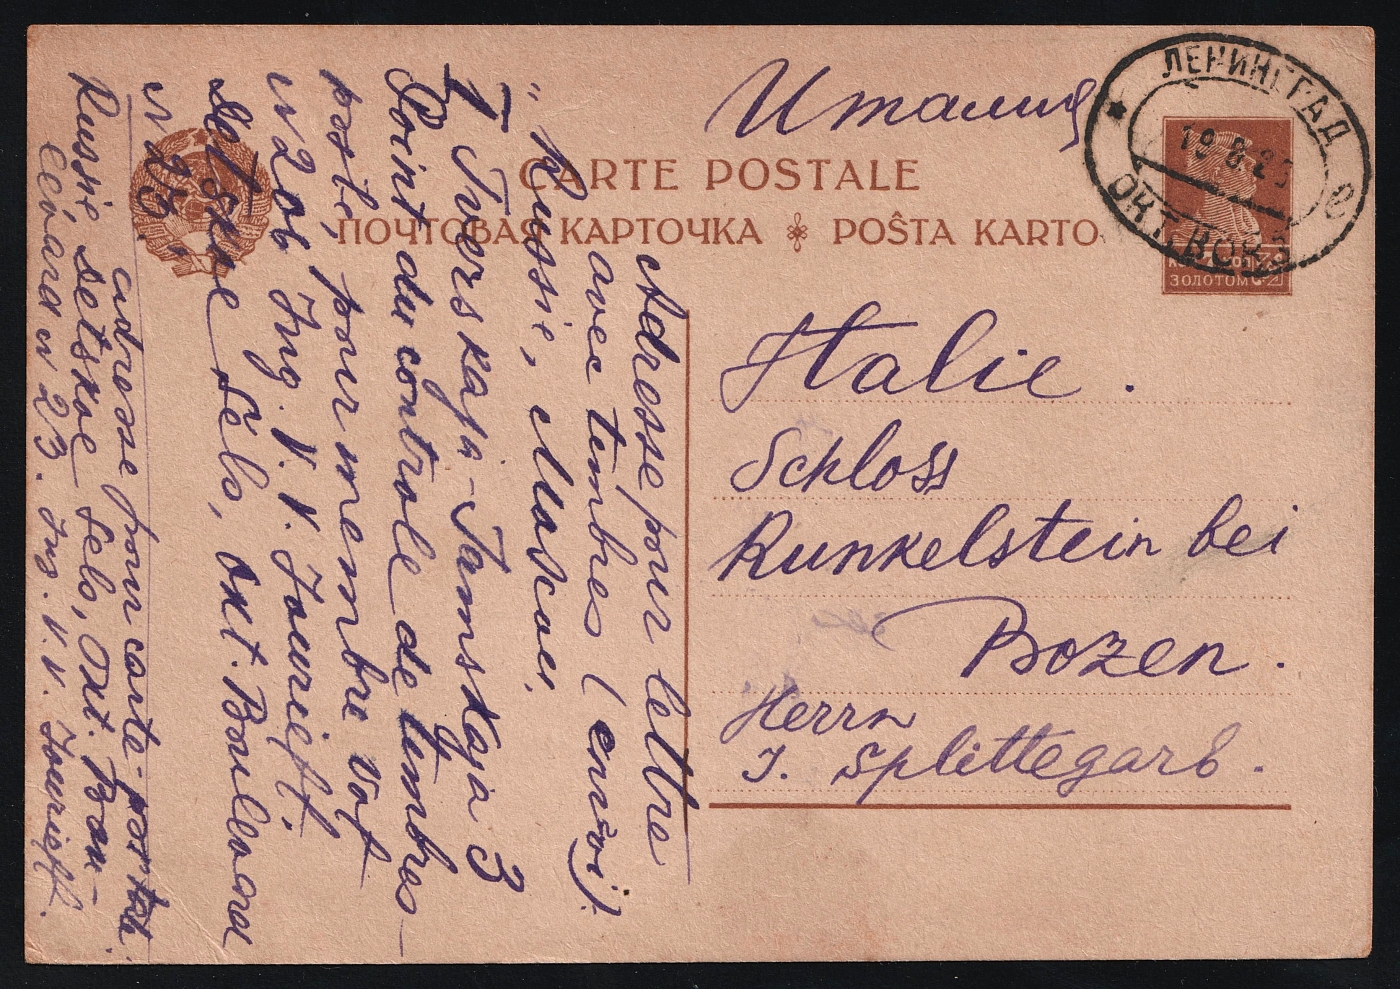 Италия
CARTE POSTALE
ПОЧТОВАЯ КАРТОЧКА POŜTA KARTO
ЛЕНИНГРАД
19.8.2
ОКТ. ВОКЗ
ЗОЛОТОМ
Italie.
Schloss
Runkelstein bei
Bozen.
Herrn
J. Splittegarb.
Adresse pour lettre
avec timbres (envoi).
"Russie, Moscou,
1 Tverskaja-Jamskaja 3
Point du controle de timbres-
poste, pour membre sof
N 206 Ing. V. V. Jourieff.
Detskoe Selo, Okt. Boulevard
N 23."
adresse pour carte-postale:
Russie, Detskoe Selo, Okt. Bou-
levard N 23. Ing. V. V. Jourieff.